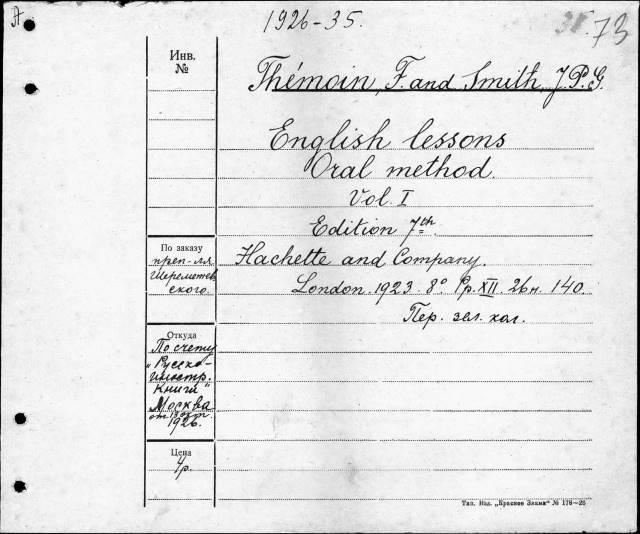 A
1926-35.
73
Инв.
№
Thémoin, F. and Smith, J.P.G.
English lessons
Oral method.
Vol. I
Edition 7th.
По заказу
преп-ля
Шереметев
ского.
Hachette and Company.
London. 1923. 8° Pp. XII. 26н. 140.
Пер. зел. кол.
Откуда
По счету
"Русско-
иностр.
Книги"
Москва
1926.
Цена
4р.
Тип. Изд. „Красное Знамя“ № 178—25